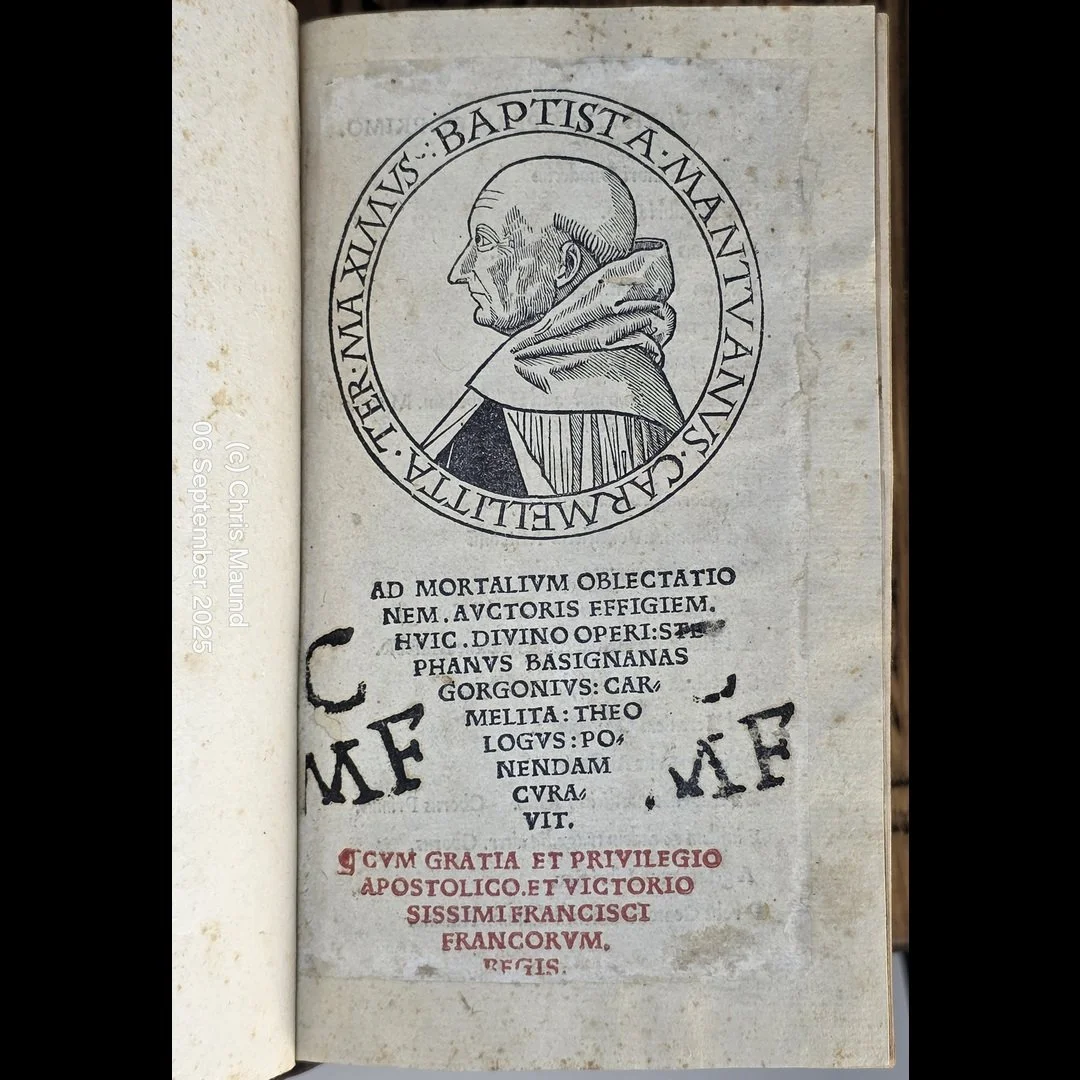 BAPTISTA·MANTVANVS·CARMELLITTA·TER·MAXIMVS
AD MORTALIVM OBLECTATIO
NEM. AVCTORIS EFFIGIEM.
HVIC. DIVINO OPERI: STE
PHANVS BASIGNANAS
GORGONIVS: CAR⸗
MELITA: THEO
LOGVS: PO⸗
NENDAM
CVRA⸗
VIT.
C
MF
MF
CVM GRATIA ET PRIVILEGIO
APOSTOLICO. ET VICTORIO
SISSIMI FRANCISCI
FRANCORVM.
REGIS.
(c) Chris Maund
06 September 2025